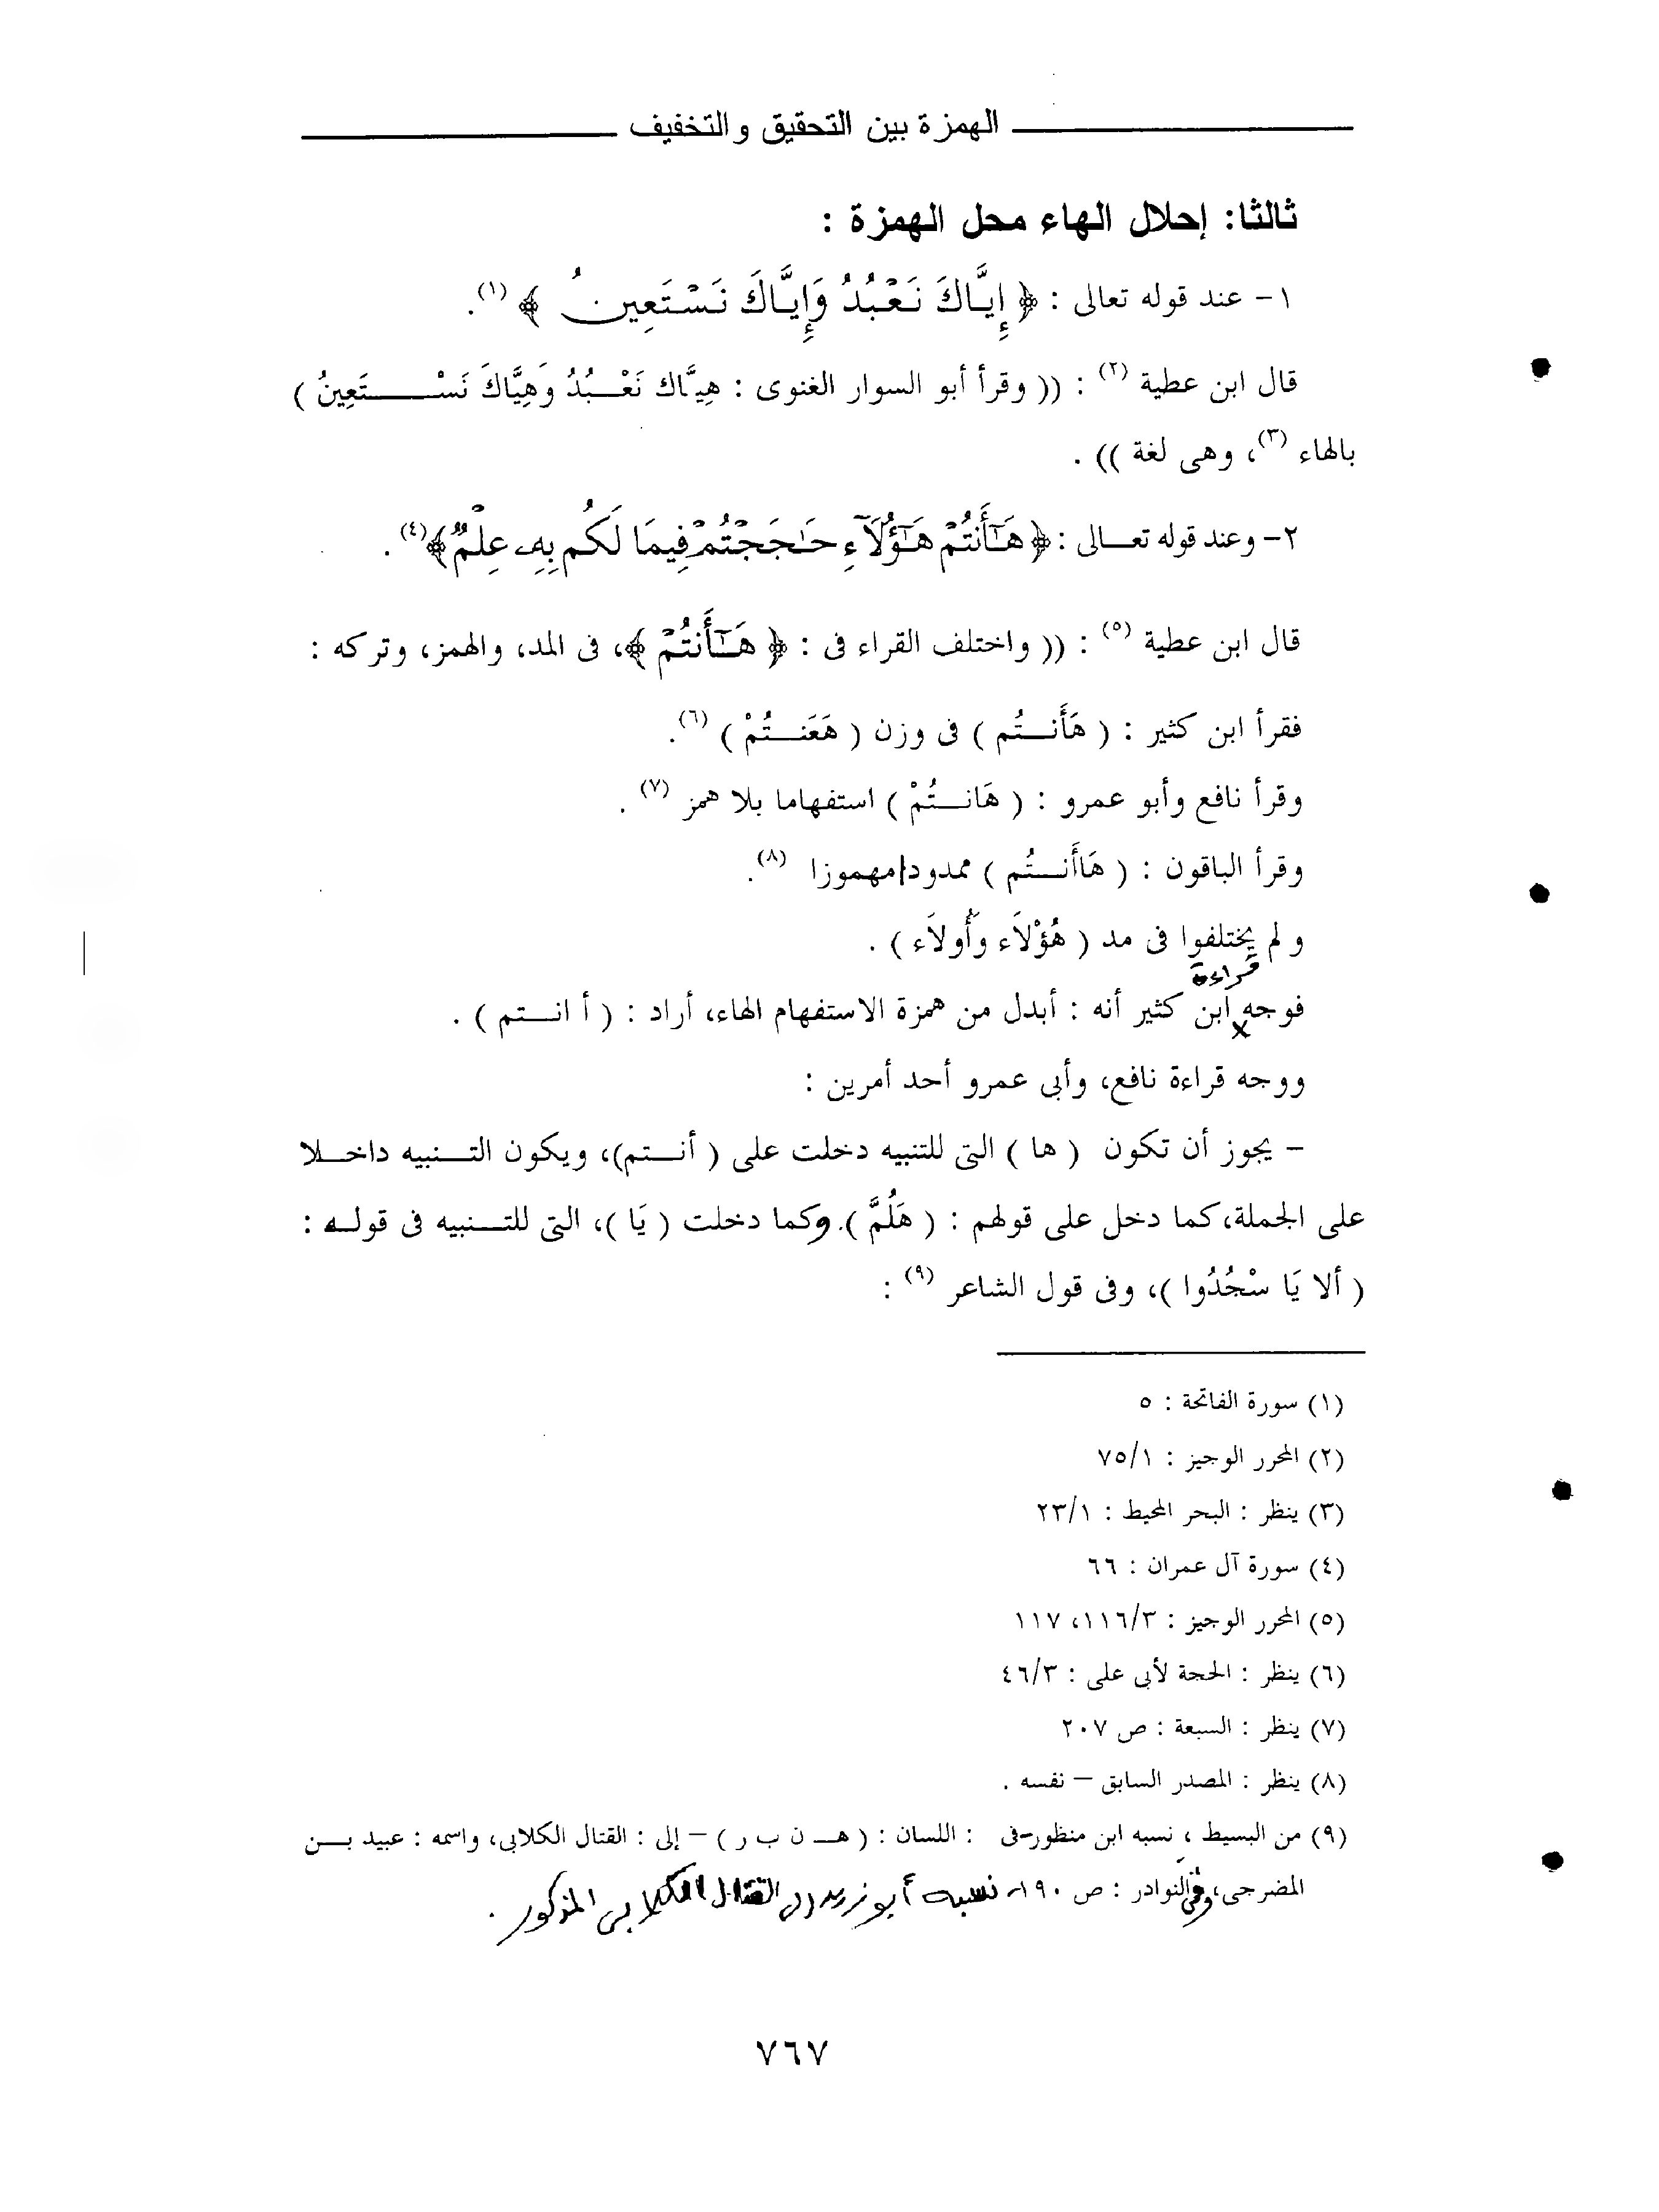 الهمزة بين التحقيق والتخفيف
ثالثا: إحلال الهاء محل الهمزة :
١- عند قوله تعالى : ﴿ إِيَّاكَ نَعْبُدُ وَإِيَّاكَ نَسْتَعِينُ ﴾ (١).
قال ابن عطية (٢) : (( وقرأ أبو السوار الغنوى : هِيَّاك نَعْبُدُ وَهِيَّاكَ نَسْتَعِينُ )
بالهاء (٣)، وهى لغة )) .
٢- وعند قوله تعالى : ﴿ هَٰٓأَنتُمْ هَٰٓؤُلَآءِ حَٰجَجْتُمْ فِيمَا لَكُم بِهِۦ عِلْمٌ ﴾(٤) .
قال ابن عطية (٥) : (( واختلف القراء فى : ﴿ هَٰٓأَنتُمْ ﴾، فى المد، والهمز، وتركه :
فقرأ ابن كثير : ( هَأَنتُم ) فى وزن ( هَعَنتُمْ ) (٦).
وقرأ نافع وأبو عمرو : ( هَانتُمْ ) استفهاما بلا همز (٧) .
وقرأ الباقون : ( هَاأَنتُم ) ممدودا مهموزا (٨).
ولم يختلفوا فى مد ( هُؤْلاَء وأُولاَء ) .
قراءة
فوجه ابن كثير أنه : أبدل من همزة الاستفهام الهاء، أراد : ( أ انتم ) .
ووجه قراءة نافع، وأبى عمرو أحد أمرين :
- يجوز أن تكون ( ها ) التى للتنبيه دخلت على ( أنتم)، ويكون التنبيه داخلا
على الجملة، كما دخل على قولهم : ( هَلُمَّ ). وكما دخلت ( يَا )، التى للتنبيه فى قوله :
( ألا يَا سْجُدُوا )، وفى قول الشاعر (٩) :
(١) سورة الفاتحة : ٥
(٢) المحرر الوجيز : ٧٥/١
(٣) ينظر : البحر المحيط : ٢٣/١
(٤) سورة آل عمران : ٦٦
(٥) المحرر الوجيز : ١١٦/٣، ١١٧
(٦) ينظر : الحجة لأبى على : ٤٦/٣
(٧) ينظر : السبعة : ص ٢٠٧
(٨) ينظر : المصدر السابق - نفسه .
(٩) من البسيط ، نسبه ابن منظور-فى : اللسان : ( هـ ن ب ر ) - إلى : القتال الكلابى، واسمه : عبيد بن
المضرجى، وفى النوادر : ص ١٩٠ نسبه أبو زيد إلى القتال الكلابى المذكور .
٧٦٧